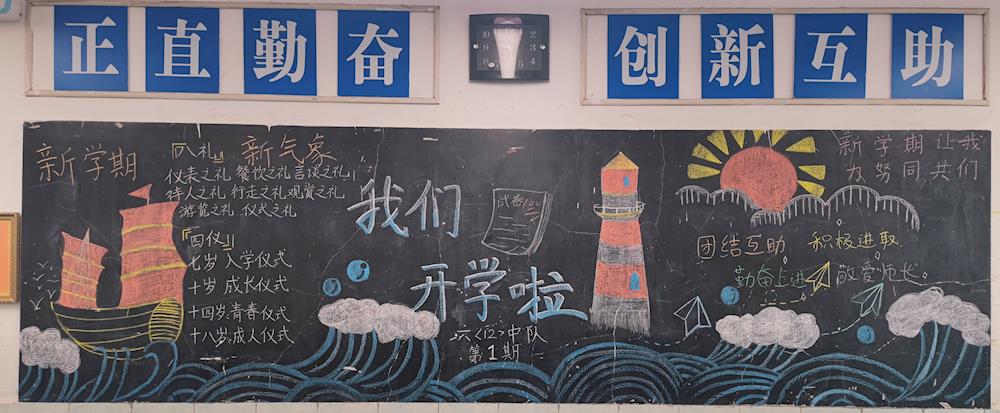 正直勤奋
创新互助
10
9
8
2
3
4
新学期
『八礼』
新气象
仪表之礼 餐饮之礼 言谈之礼
待人之礼 行走之礼 观赏之礼
游览之礼 仪式之礼
『四仪』
七岁 入学仪式
十岁 成长仪式
十四岁 青春仪式
十八岁 成人仪式
我们
开学啦
六<12>中队
第1期
试卷
新学期让我
力努同共们
团结互助 积极进取
勤奋上进 敬爱师长